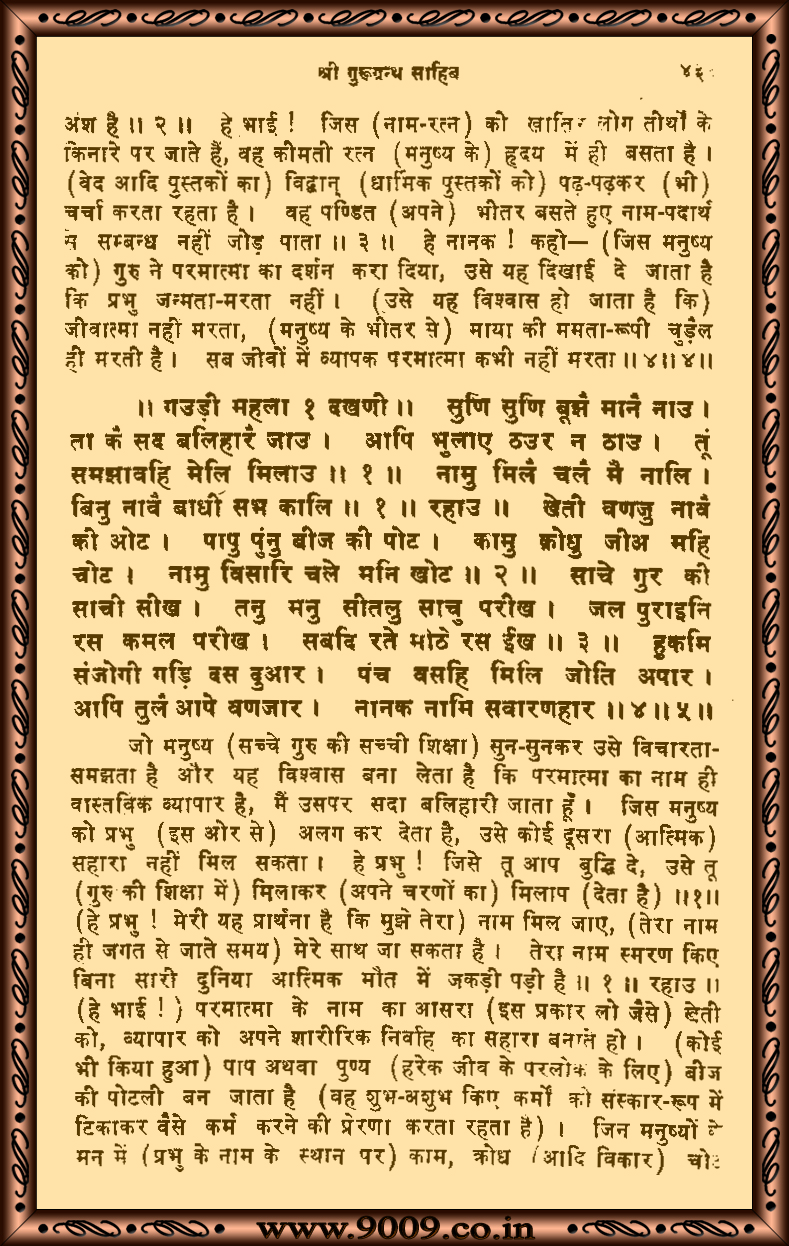 श्री गुरूग्रन्थ साहिब
अंश है ॥ २ ॥ हे भाई ! जिस (नाम-रत्न) को लोग तीर्थों के
किनारे पर जाते हैं, वह कीमती रत्न (मनुष्य के) हृदय में ही बसता है ।
(वेद आदि पुस्तकों का) विद्वान् (धार्मिक पुस्तकों को) पढ़-पढ़कर (भी)
चर्चा करता रहता है । वह पण्डित (अपने) भीतर बसते हुए नाम-पदार्थ
से सम्बन्ध नहीं जोड़ पाता ॥ ३ ॥ हे नानक ! कहो— (जिस मनुष्य
को) गुरु ने परमात्मा का दर्शन करा दिया, उसे यह दिखाई दे जाता है
कि प्रभु जन्मता-मरता नहीं । (उसे यह विश्वास हो जाता है कि)
जीवात्मा नहीं मरता, (मनुष्य के भीतर से) माया की ममता-रूपी चुड़ैल
ही मरती है । सब जीवों में व्यापक परमात्मा कभी नहीं मरता ॥ ४ ॥ ४ ॥
॥ गउड़ी महला १ दखणी ॥ सुणि सुणि बूझै मानै नाउ ।
ता कै सद बलिहारै जाउ । आपि भुलाए ठउर न ठाउ । तूं
समझावहि मेलि मिलाउ ॥ १ ॥ नामु मिलै चलै मै नालि ।
बिनु नावै बाधी सभ कालि ॥ १ ॥ रहाउ ॥ खेती वणजु नावै
की ओट । पापु पुंनु बीज की पोट । कामु क्रोधु जीअ महि
चोट । नामु विसारि चले मनि खोट ॥ २ ॥ साचे गुर की
साची सीख । तनु मनु सीतलु साचु परीख । जल पुराइनि
रस कमल परीख । सबदि रते मीठे रस ईख ॥ ३ ॥ हुकमि
संजोगी गड़ि दस दुआर । पंच वसहि मिलि जोति अपार ।
आपि तुलै आपे वणजार । नानक नामि सवारणहार ॥ ४ ॥ ५ ॥
जो मनुष्य (सच्चे गुरु की सच्ची शिक्षा) सुन-सुनकर उसे विचारता-
समझता है और यह विश्वास बना लेता है कि परमात्मा का नाम ही
वास्तविक व्यापार है, मैं उसपर सदा बलिहारी जाता हूँ । जिस मनुष्य
को प्रभु (इस ओर से) अलग कर देता है, उसे कोई दूसरा (आत्मिक)
सहारा नहीं मिल सकता । हे प्रभु ! जिसे तू आप बुद्धि दे, उसे तू
(गुरु की शिक्षा में) मिलाकर (अपने चरणों का) मिलाप (देता है) ॥१॥
(हे प्रभु ! मेरी यह प्रार्थना है कि मुझे तेरा) नाम मिल जाए, (तेरा नाम
ही जगत से जाते समय) मेरे साथ जा सकता है । तेरा नाम स्मरण किए
बिना सारी दुनिया आत्मिक मौत में जकड़ी पड़ी है ॥ १ ॥ रहाउ ॥
(हे भाई ! ) परमात्मा के नाम का आसरा (इस प्रकार लो जैसे) खेती
को, व्यापार को अपने शारीरिक निर्वाह का सहारा बनाते हो । (कोई
भी किया हुआ) पाप अथवा पुण्य (हरेक जीव के परलोक के लिए) बीज
की पोटली बन जाता है (वह शुभ-अशुभ किए कर्मों को संस्कार-रूप में
टिकाकर वैसे कर्म करने की प्रेरणा करता रहता है) । जिन मनुष्यों के
मन में (प्रभु के नाम के स्थान पर) काम, क्रोध (आदि विकार)
www.9009.co.in